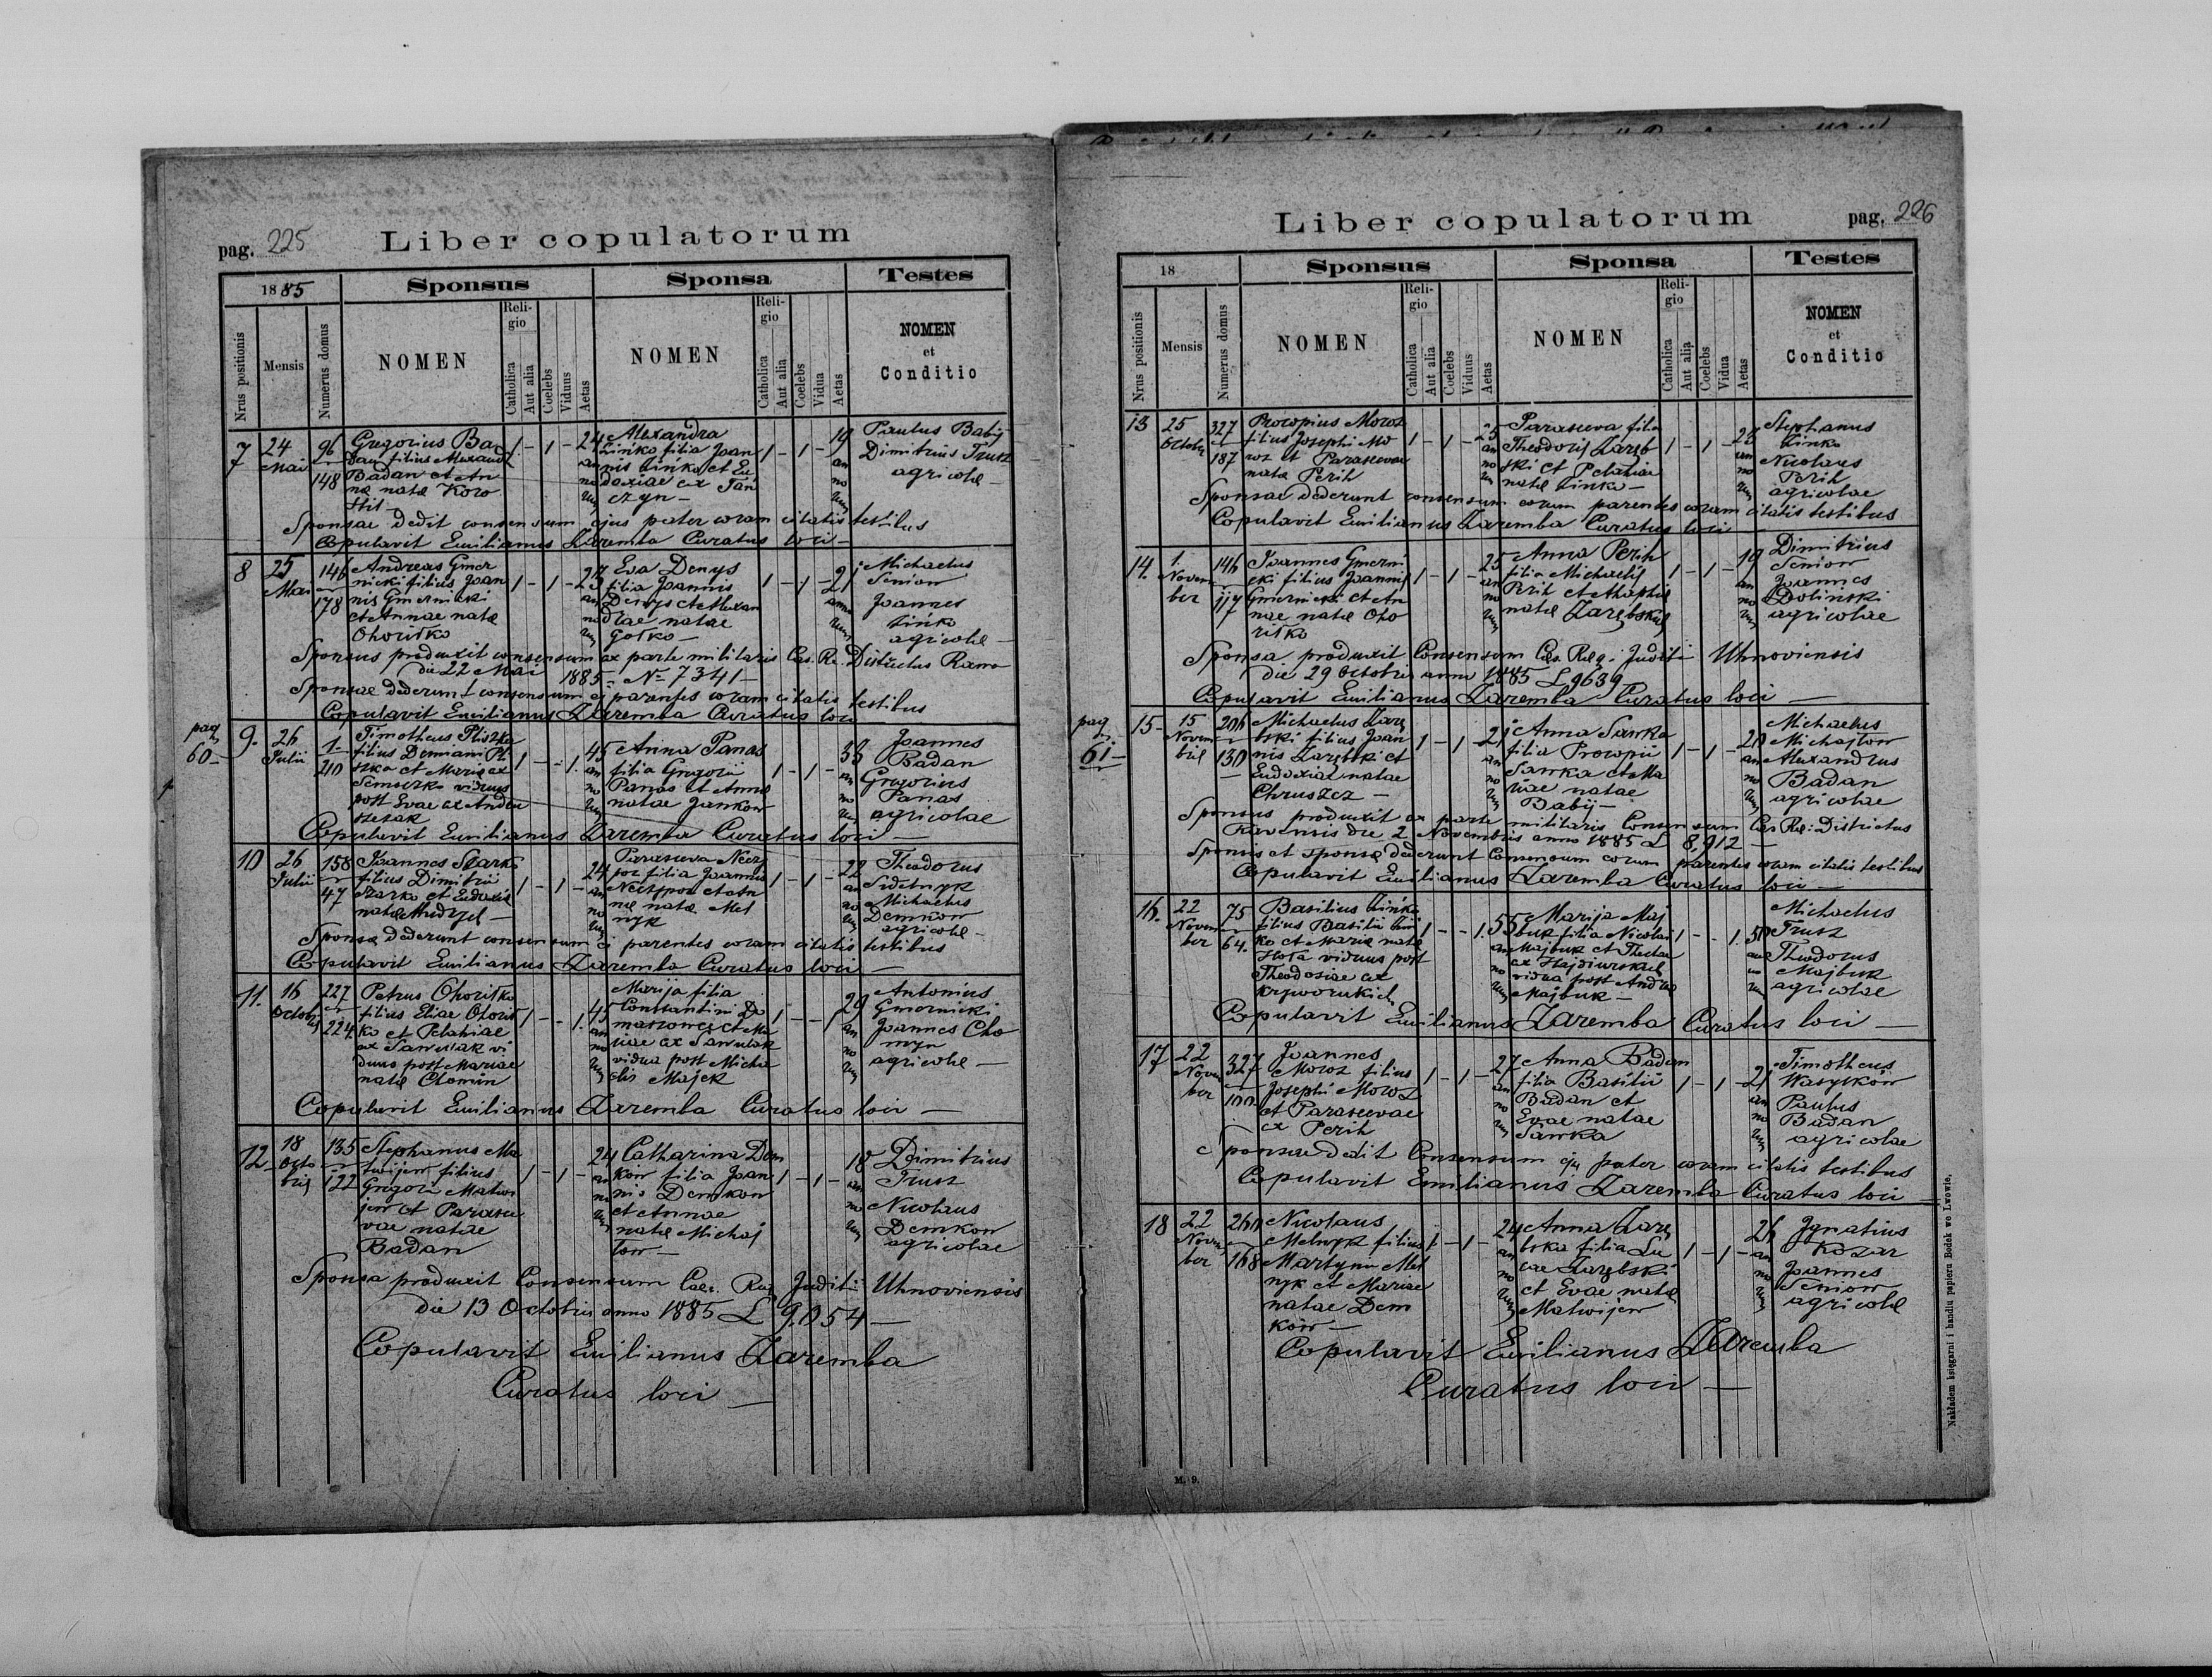 pag. 225 Liber copulatorum
1885 Sponsus Sponsa Testes
Nrus positionis Mensis Numerus domus NOMEN Religio Catholica Aut alia Coelebs Viduus Aetas NOMEN Religio Catholica Aut alia Coelebs Vidua Aetas NOMEN et Conditio
7 24 Mai 96 148
Gregorius Ba
dan filius Alexand
Badan et An
nae natae Koro
stil
1 - 1 - 24 annorum
Alexandra
Linko filia Joan
nis Linko et Eu
doxiae ex Tań
czyn -
1 - 1 - 19 annorum
Paulus Babij
Dimitrius Trusz
agricolae -
Sponsae dedit consensum ejus pater coram citatis testibus
Copulavit Emilianus Zaremba Curatus loci -
8 25 Mai 146 178
Andreas Gmer
nicki filius Joan
nis Gmernicki
et Annae natae
Ohoritko
1 - 1 - 23 annorum
Eva Denys
filia Joannis
Denys et Alexan
drae natae
Gotko -
1 - 1 - 21 annorum
Michaelus
Seniow
Joannes
Linko
agricolae -
Sponsus produxit consensum ex parte militaris Cas. Re. Districtus Rawa
die 22 Mai 1885 - No 7341 -
Sponsae dederunt consensum ej parentes coram citatis testibus
Copulavit Emilianus Zaremba Curatus loci
pag 60 -
9. 26 Julii 1 210
Timotheus Pliszka
filius Demiani Pli
szka et Mariae ex
Semserko viduus
post Evae ex Andru
szczak
1 - - 1. 45 annorum
Anna Panas
filia Gregorii
Panas et Annae
natae Jankow
1 - 1 - 33 annorum
Joannes
Badan
Gregorius
Panas
agricolae
Copulavit Emilianus Zaremba Curatus loci -
10 26 Julii 158 47
Joannes Szarko
filius Dimitrii
Szarko et Eudoxiae
natae Mudryk -
1 - 1 - 24 annorum
Parasceva Neczy
por filia Joannis
Neczypor et An
nae natae Mel
nyk
1 - 1 - 22 annorum
Theodorus
Swetnyk
Michaelus
Demkow
agricolae -
Sponsae dederunt consensum ej parentes coram citatis testibus
Copulavit Emilianus Zaremba Curatus loci -
11. 16 Octobris 227 224
Petrus Ohoritko
filius Eliae Ohorit
ko et Pelahiae
ex Sawulak vi
duus post Mariae
natae Chomin
1 - - 1. 45 annorum
Marija filia
Constantini Do
maszowcz et Ma
riae ex Sawulak
vidua post Micha
elis Majek
1 - - 1 29 annorum
Antonius
Gmernicki
Joannes Cho
myn
agricolae -
Copulavit Emilianus Zaremba Curatus loci -
12 18 Octobris 135 122
Stephanus Ma
twijew filius
Grigori Matwi
jew et Parasce
vae natae
Badan
1 - 1 - 24 annorum
Catharina Dem
kow filia Joan
nis Demkow
et Annae
natae Michaj
low -
1 - 1 - 18 annorum
Dimitrius
Trusz
Nicolaus
Demkow
agricolae
Sponsa produxit Consensum Caes. Reg Juditii Uhnoviensis
die 13 Octobris anno 1885 L 9.054 -
Copulavit Emilianus Zaremba
Curatus loci -
Liber copulatorum pag. 226
18 Sponsus Sponsa Testes
Nrus positionis Mensis Numerus domus NOMEN Religio Catholica Aut alia Coelebs Viduus Aetas NOMEN Religio Catholica Aut alia Coelebs Vidua Aetas NOMEN et Conditio
13 25 Octobr 327 187
Procopius Moroz
filius Josephi Mo
roz et Parascevae
natae Perih
1 - 1 - 25 annorum
Parasceva filia
Theodorij Zaręb
ski et Pelahiae
natae Linko -
1 - 1 - 23 annorum
Stephanus
Linko
Nicolaus
Perih
agricolae
Sponsae dederunt consensum eorum parentes coram citatis testibus
Copulavit Emilianus Zaremba Curatus loci
14. 1. Novem ber 146 117
Joannes Gmerni
cki filius Joannis
Gmernicki et An
nae natae Oho
ritko
1 - 1 - 25 annorum
Anna Perih
filia Michaelis
Perih et Ahaphiae
natae Zarębskij
1 - 1 - 19 annorum
Dimitrius
Seniow
Joannes
Doliński
agricolae
Sponsa produxit Consensum Caes. Reg. Juditii Uhnoviensis
die 29 Octobris anno 1885 L 9639
Copulavit Emilianus Zaremba Curatus loci -
pag 61 -
15 - 15 Novem bris 206 130
Michaelus Zarę
bski filius Joan
nis Zarębski et
Eudoxiae natae
Chruszcz -
1 - 1 - 21 annorum
Anna Sawka
filia Procopii
Sawka et Ma
riae natae
Babij -
1 - 1 - 20 annorum
Michaelus
Michajlow
Alexandrus
Badan
agricolae
Sponsus produxit ex parte militaris Consensum Cas Reg: Districtus
Ravensis die 2 Novembris anno 1885 L 8,912 -
Sponsis et sponsae dederunt Consensum eorum parentes coram citatis testibus
Copulavit Emilianus Zaremba Curatus loci -
16. 22 Novem ber 75 64.
Basilius Linko
filius Basilii Lin
ko et Mariae natae
Hota viduus post
Theodosiae ex
Kryworukich
1 - - 1. 55 annorum
Marija Maj
buk filia Nicolai
Majbuk et Theclae
ex Hajdiwskich
vidua post Andrea
Majbuk -
1 - - 1. 50 annorum
Michaelus
Trusz
Theodorus
Majbuk
agricolae
Copulavit Emilianus Zaremba Curatus loci -
17 22 Novem ber 327 100.
Joannes
Moroz filius
Josephi Moroz
et Parascevae
ex Perih
1 - 1 - 27 annorum
Anna Badan
filia Basilii
Badan et
Evae natae
Sawka
1 - 1 - 21 annorum
Timotheus
Wasylkow
Paulus
Badan
agricolae
Sponsae dedit Consensum eju pater coram citatis testibus
Copulavit Emilianus Zaremba Curatus loci -
18 22 Novem ber 260 168
Nicolaus
Melnyk filius
Martynii Mel
nyk et Mariae
natae Dem
kow -
1 - 1 - 24 annorum
Anna Zarę
bska filia Lu
cae Zarębski
et Evae natae
Matwijew
1 - 1 - 26 annorum
Jgnatius
Kozar
Joannes
Seniow
agricolae
Copulavit Emilianus Zaremba
Curatus loci -
M. 9.
Nakładem księgarni i handlu papieru Bodek we Lwowie.